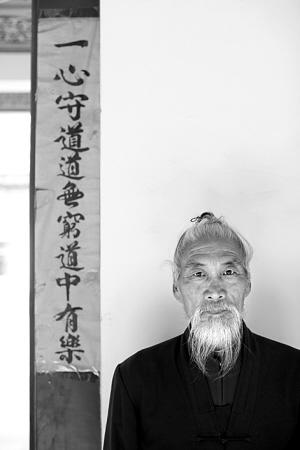 一心守道道無窮道中有樂